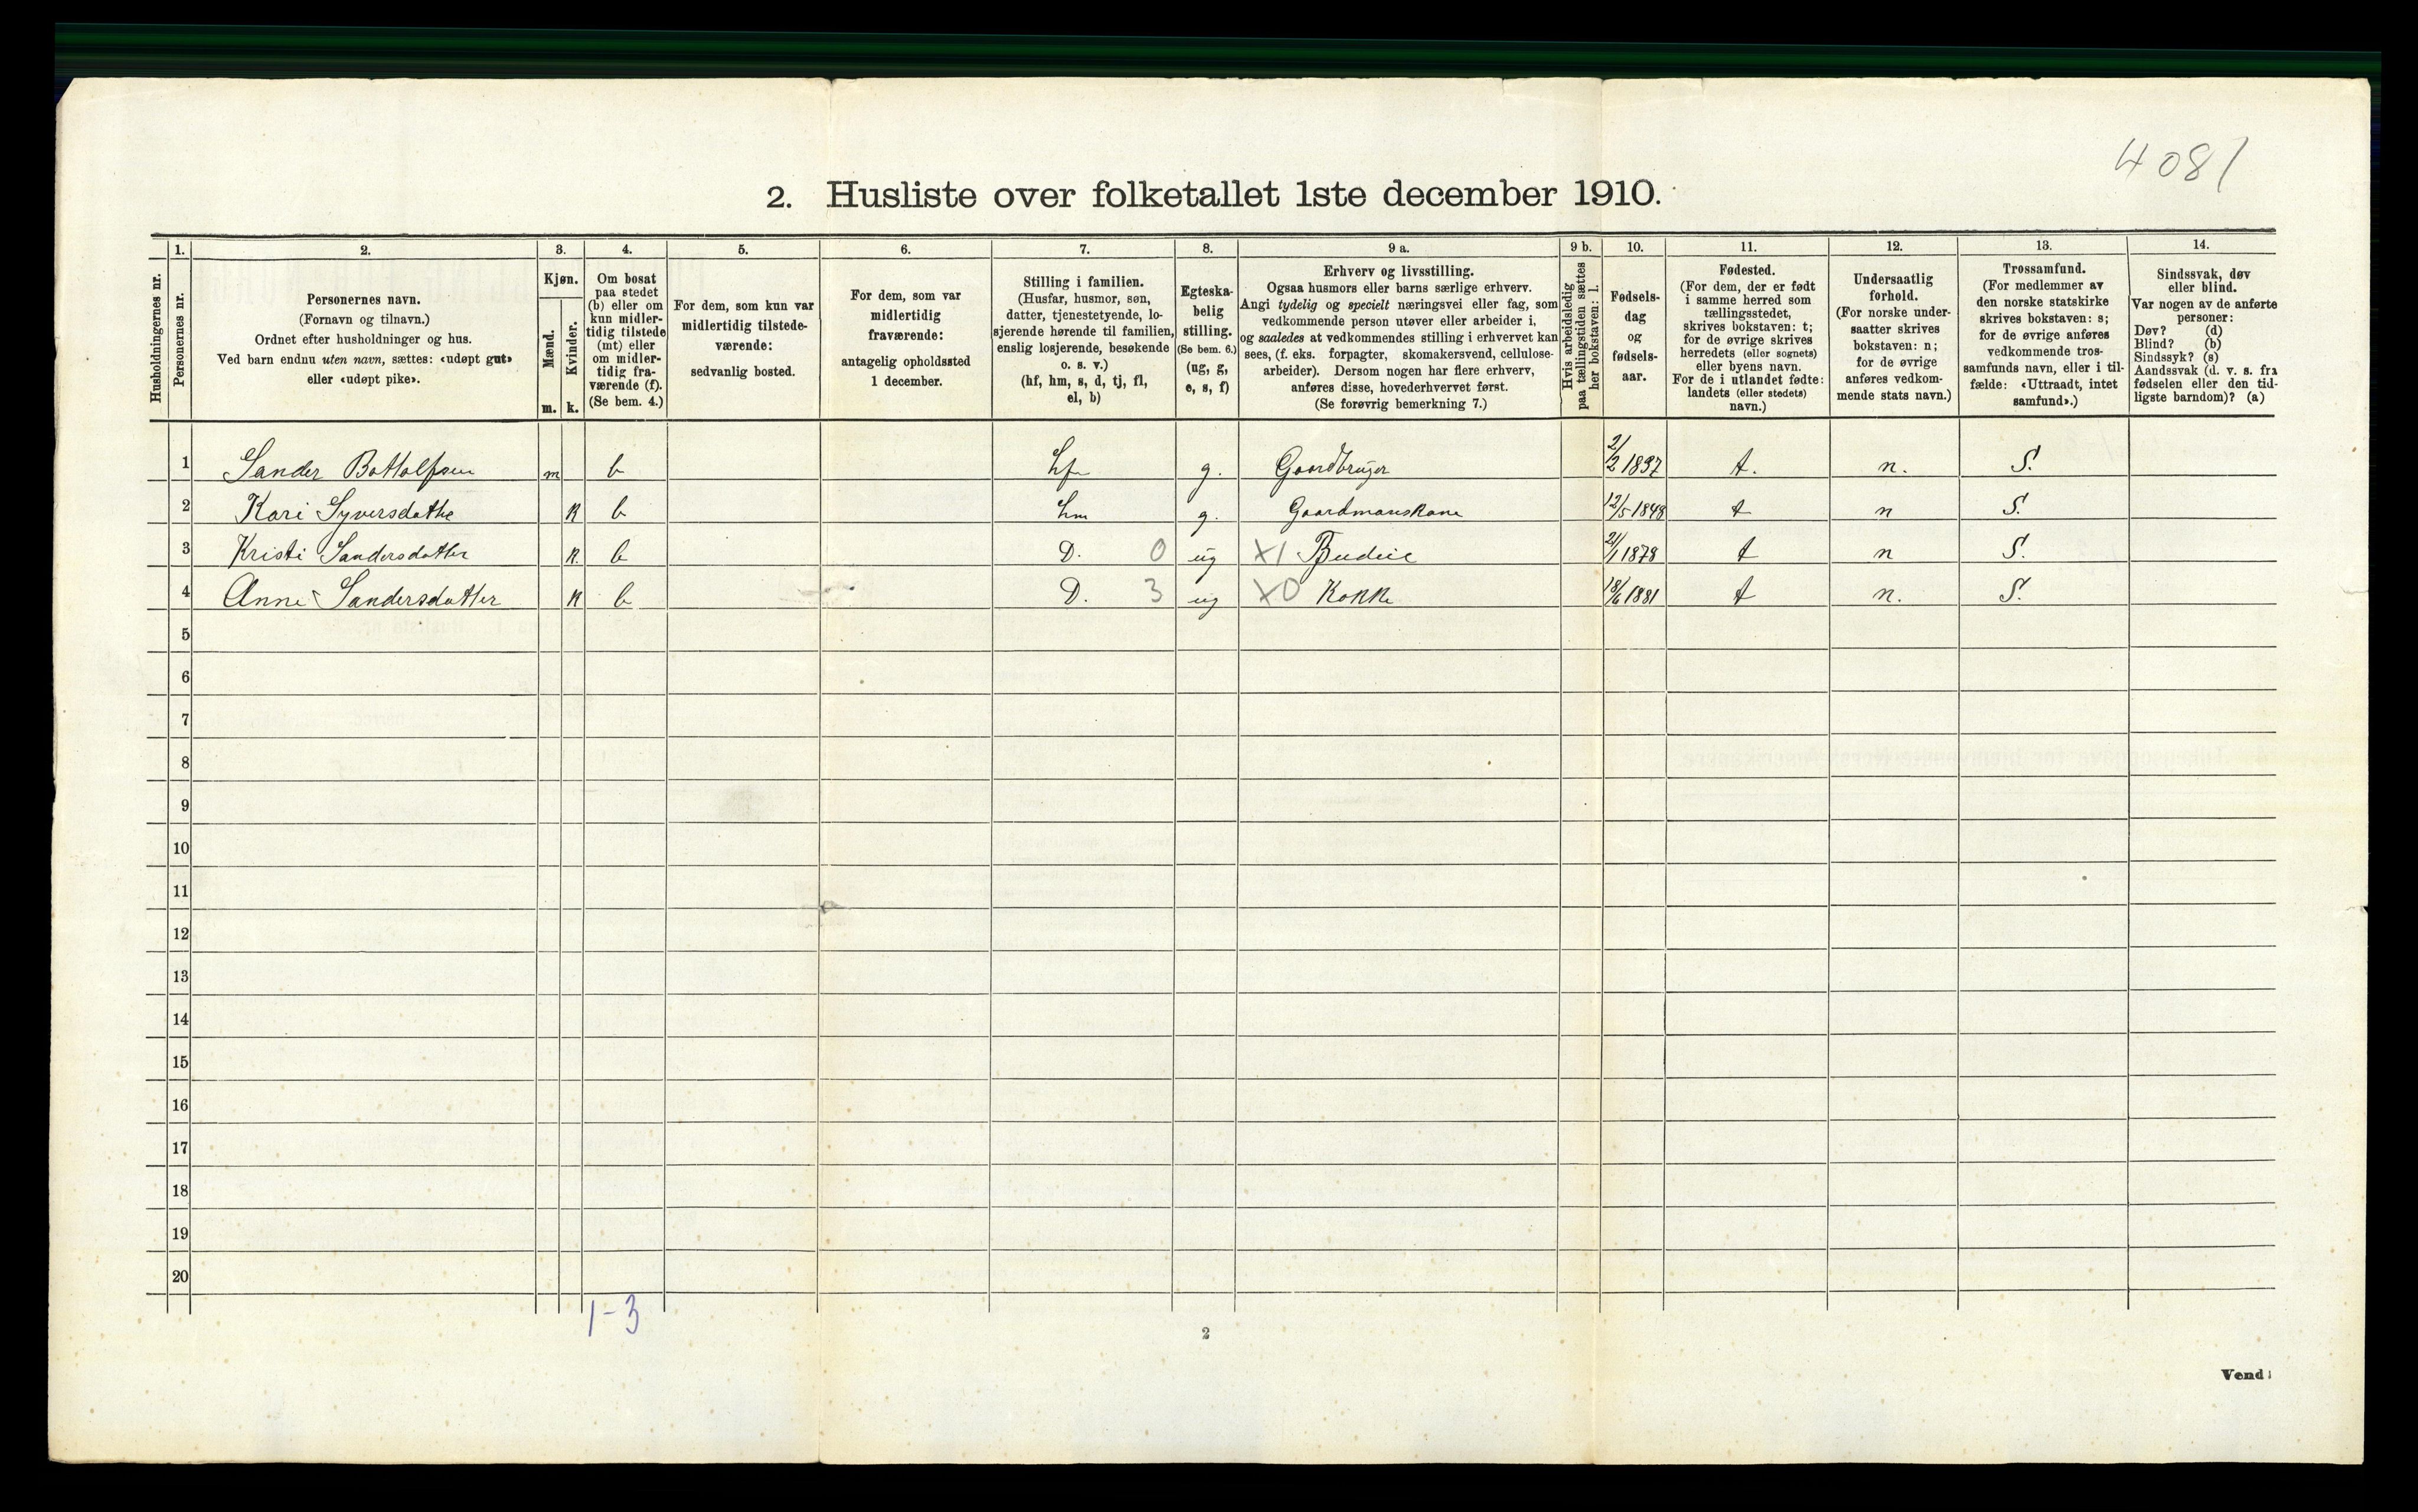 4081
2. Husliste over folketallet 1ste december 1910.
Husholdningernes nr.
1.
Personernes nr.
2.
Personernes navn.
(Fornavn og tilnavn.)
Ordnet efter husholdninger og hus.
Ved barn endnu uten navn, sættes: «udøpt gut»
eller «udøpt pike».
3.
Kjøn.
Mænd.
Kvinder.
m. k.
4.
Om bosat
paa stedet
(b) eller om
kun midler-
tidig tilstede
(mt) eller
om midler-
tidig fra-
værende (f).
(Se bem. 4.)
5.
For dem, som kun var
midlertidig tilstede-
værende:
sedvanlig bosted.
6.
For dem, som var
midlertidig
fraværende:
antagelig opholdssted
1 december.
7.
Stilling i familien.
(Husfar, husmor, søn,
datter, tjenestetyende, lo-
sjerende hørende til familien,
enslig losjerende, besøkende
o. s. v.)
(hf, hm, s, d, tj, fl,
el, b)
8.
Egteska-
belig
stilling.
(Se bem. 6.)
(ug, g,
e, s, f)
9 a.
Erhverv og livsstilling.
Ogsaa husmors eller barns særlige erhverv.
Angi tydelig og specielt næringsvei eller fag, som
vedkommende person utøver eller arbeider i,
og saaledes at vedkommendes stilling i erhvervet kan
sees, (f. eks. forpagter, skomakersvend, cellulose-
arbeider). Dersom nogen har flere erhverv,
anføres disse, hovederhvervet først.
(Se forøvrig bemerkning 7.)
9 b.
Hvis arbeidsledig
paa tællingstiden sættes
her bokstaven: l.
10.
Fødsels-
dag
og
fødsels-
aar.
11.
Fødested.
(For dem, der er født
i samme herred som
tællingsstedet,
skrives bokstaven: t;
for de øvrige skrives
herredets (eller sognets)
eller byens navn.
For de i utlandet fødte:
landets (eller stedets)
navn.)
12.
Undersaatlig
forhold.
(For norske under-
saatter skrives
bokstaven: n;
for de øvrige
anføres vedkom-
mende stats navn.)
13.
Trossamfund.
(For medlemmer av
den norske statskirke
skrives bokstaven: s;
for de øvrige anføres
vedkommende tros-
samfunds navn, eller i til-
fælde: «Uttraadt, intet
samfund».)
14.
Sindssvak, døv
eller blind.
Var nogen av de anførte
personer:
Døv? (d)
Blind? (b)
Sindssyk? (s)
Aandssvak (d. v. s. fra
fødselen eller den tid-
ligste barndom)? (a)
1 Sander Bottolfsen m b hf g. Gaardbruger 2/2 1837 t. n. S.
2 Kari Syversdatte K b hm g. Gaardmanskone 12/5 1848 t n S.
3 Kristi Sandersdatter K. b D. 0 ug X1 Budeie 21/1 1878 t n S.
4 Anne Sandersdatter K b D. 3 ug X0 Kokke 18/6 1881 t n. S.
5
6
7
8
9
10
11
12
13
14
15
16
17
18
19
20
1-3
2
Vend!